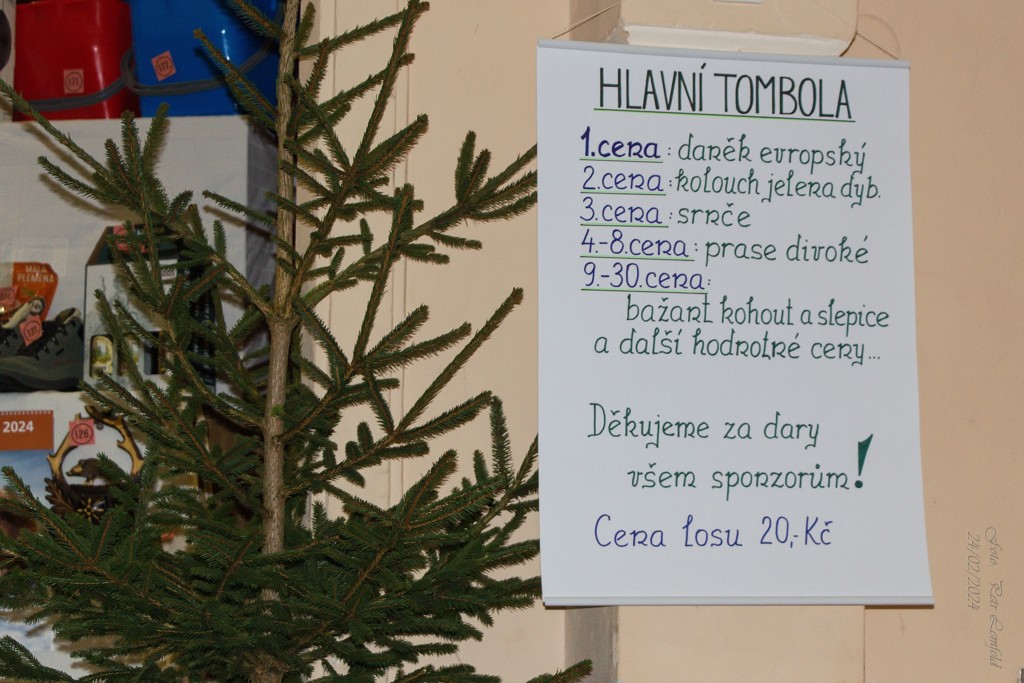 HLAVNÍ TOMBOLA
1.cena : daněk evropský
2.cena : kolouch jelena dyb.
3.cena : srnče
4.-8.cena : prase divoké
9.-30.cena:
bažant kohout a slepice
a další hodnotné ceny...
Děkujeme za dary
všem sponzorům!
Cena losu 20,-Kč
2024
126
24/02/2024
Foto Petr